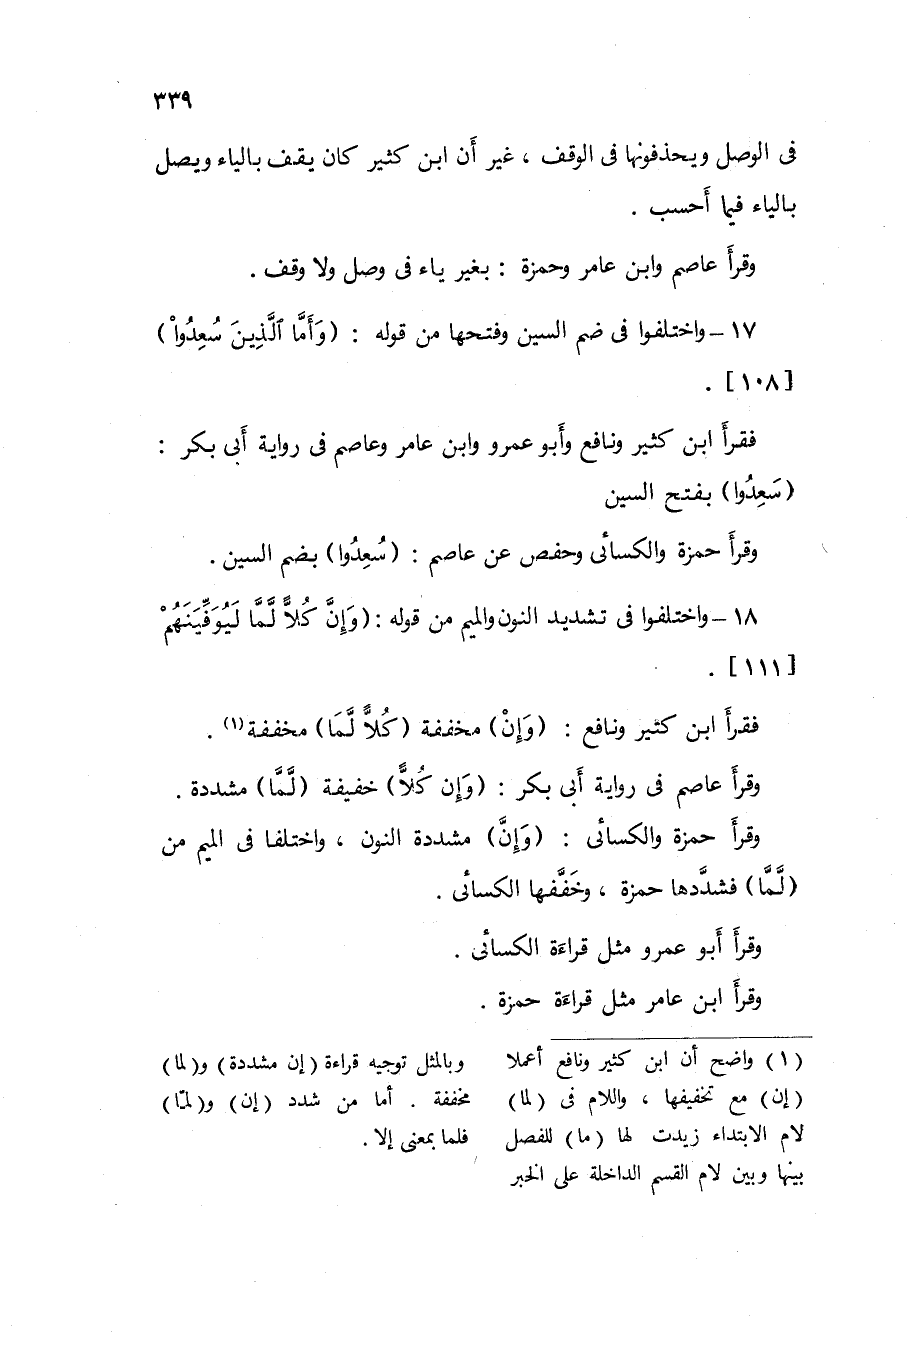 ٣٣٩
فى الوصل ويحذفونها فى الوقف ، غير أن ابن كثير كان يقف بالياء ويصل
بالياء فيما أحسب .
وقرأ عاصم وابن عامر وحمزة : بغير ياء فى وصل ولا وقف .
١٧ – واختلفوا فى ضم السين وفتحها من قوله : ( وَأَمَّا ٱلَّذِينَ سُعِدُواْ )
[ ١٠٨ ] .
فقرأ ابن كثير ونافع وأبو عمرو وابن عامر وعاصم فى رواية أبى بكر :
( سَعِدُوا ) بفتح السين
وقرأ حمزة والكسائى وحفص عن عاصم : ( سُعِدُوا ) بضم السين .
١٨ – واختلفوا فى تشديد النون والميم من قوله : ( وَإِنَّ كُلاًّ لَّمَّا لَيُوَفِّيَنَّهُمْ
[ ١١١ ] .
فقرأ ابن كثير ونافع : ( وَإِنْ ) مخففة ( كُلاًّ لَّمَا ) مخففة (١) .
وقرأ عاصم فى رواية أبى بكر : ( وَإِن كُلاًّ ) خفيفة ( لَّمَّا ) مشددة .
وقرأ حمزة والكسائى : ( وَإِنَّ ) مشددة النون ، واختلفا فى الميم من
( لَّمَّا ) فشدَّدها حمزة ، وخَفَّفها الكسائى .
وقرأ أبو عمرو مثل قراءة الكسائى .
وقرأ ابن عامر مثل قراءة حمزة .
( ١ ) واضح أن ابن كثير ونافع أعملا
( إن ) مع تخفيفها ، واللام فى ( لما )
لام الابتداء زيدت لها ( ما ) للفصل
بينها وبين لام القسم الداخلة على الخبر
وبالمثل توجيه قراءة ( إن مشددة ) و( لما )
مخففة . أما من شدد ( إن ) و( لمّا )
فلما بمعنى إلا .